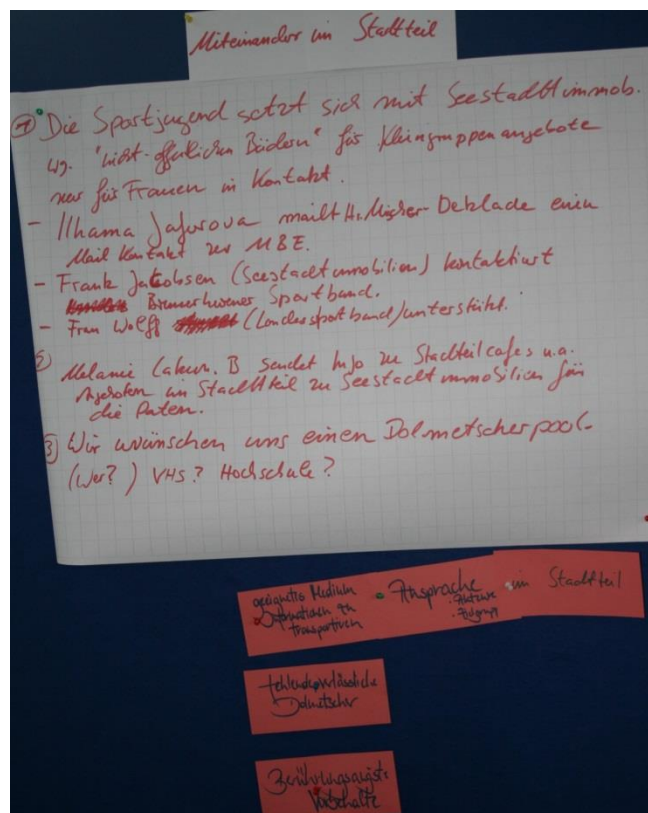 Miteinander im Stadtteil
① Die Sportjugend setzt sich mit Seestadtimmob.
wg. "nicht-öffentlichen Bädern" für Kleingruppenangebote
nur für Frauen in Kontakt.
- Ilhama Jafarova mailt H. Deklade einen
Mail Kontakt zur MBE.
- Frank Jakobsen (Seestadtimmobilien) kontaktiert
Bremerhavener Sportbund.
- Frau Wolff (Landessportbund) unterstützt.
② Melanie B sendet Info zu Stadtteilcafes u.a.
Angeboten im Stadtteil zu Seestadtimmobilien für
die Paten.
③ Wir wünschen uns einen Dolmetscherpool-
(Wer?) VHS? Hochschule?
geeignetes Medium
Informationen zu
transportieren
Ansprache
· Akteure
· Zielgrupp
im Stadtteil
fehlende verlässliche
Dolmetscher
Berührungsängste
Vorbehalte